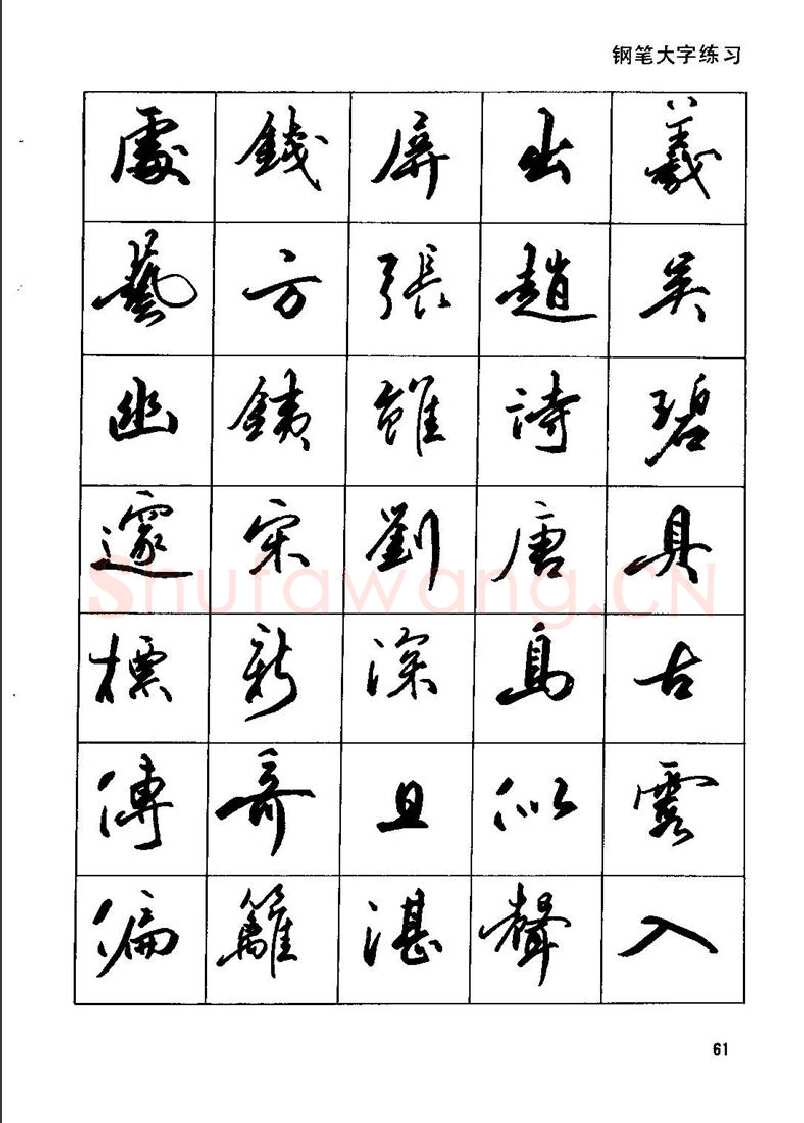 钢笔大字练习
處 錢 屏 出 羲
藝 方 張 趙 吴
幽 銕 雖 詩 碧
邃 宋 劉 唐 具
標 新 深 島 古
傳 奇 且 似 露
偏 籬 湛 聲 入
Shufawang.CN
61